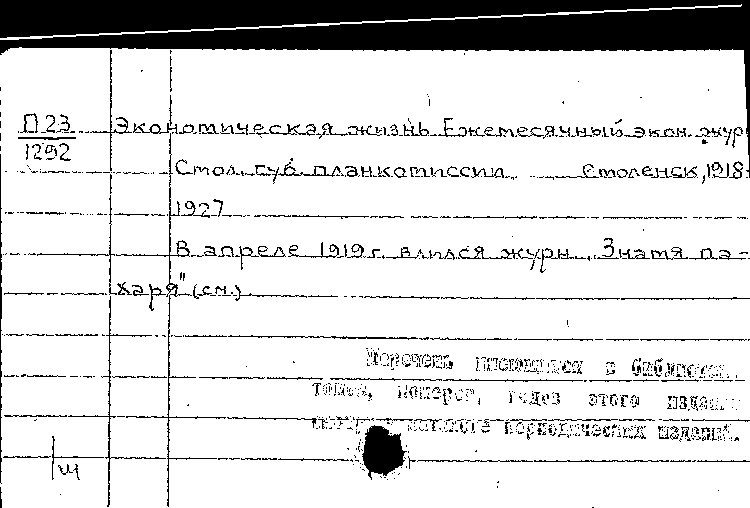 П 23
1292
Экономическая жизнь Ежемесячный экон. журн
Смол. губ. планкомиссии Смоленск, 1918-
1927
В апреле 1919 г. влился журн. „Знамя па-
харя" (см.)
Перечень имеющихся в библиотеке
томов, номеров, годов этого издания
каталоге периодических изданий.
ш